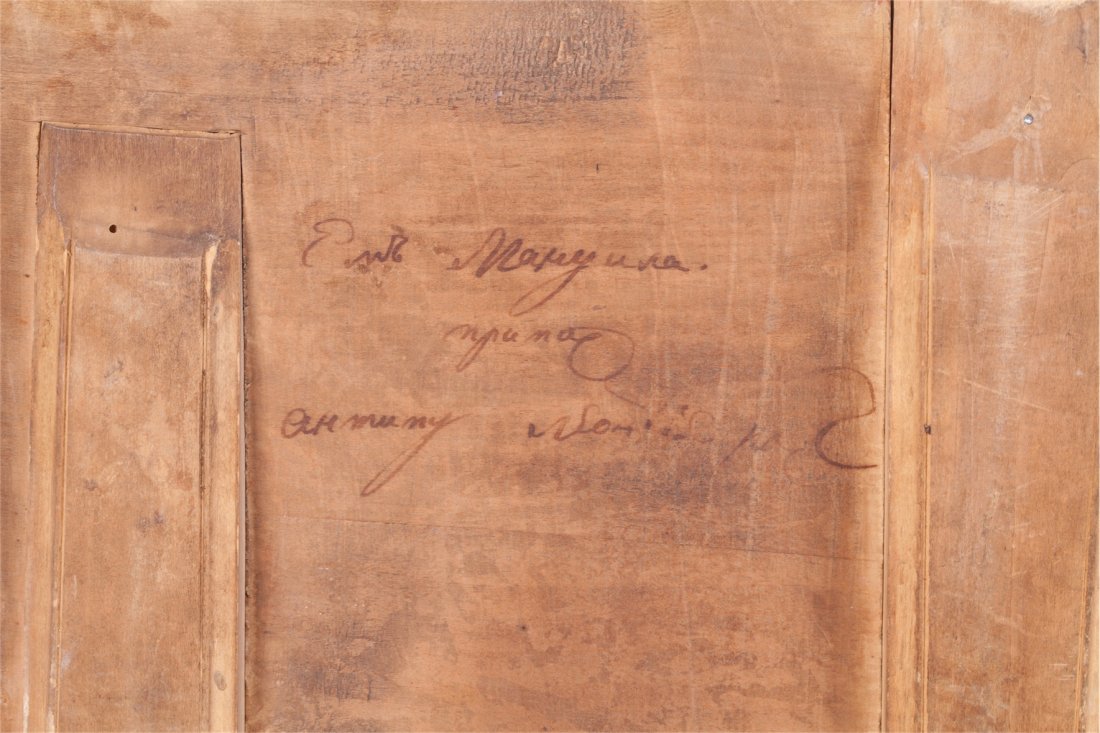 Емъ Мануила.
припа
антипу